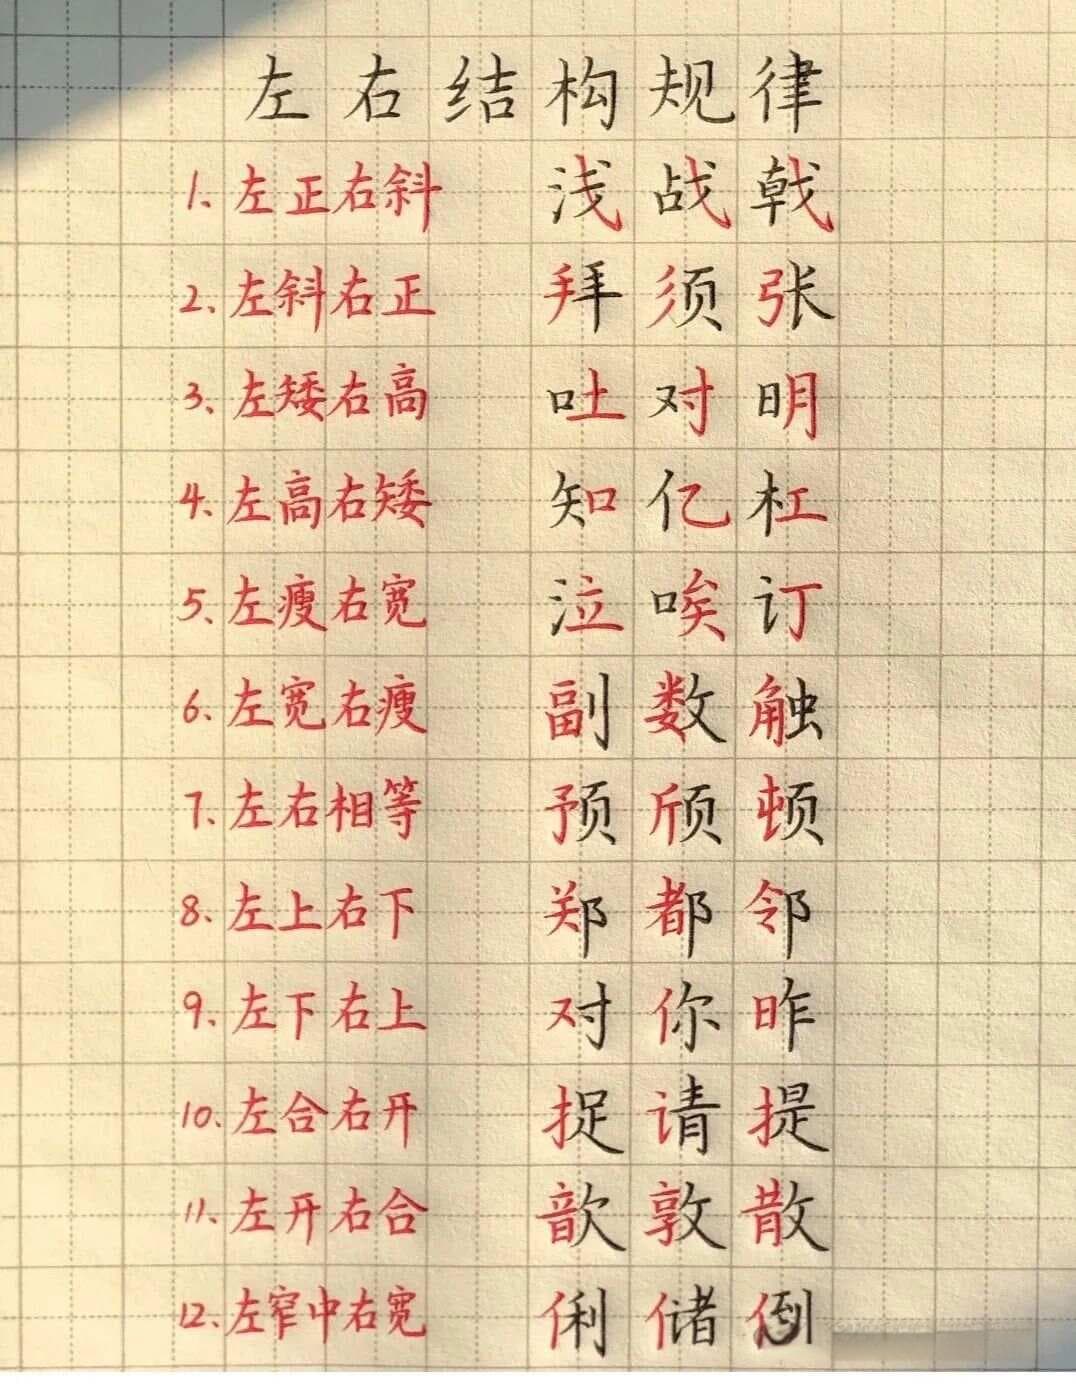 左右结构规律
1、左正右斜 浅 战 戟
2、左斜右正 拜 须 张
3、左矮右高 吐 对 明
4、左高右矮 知 亿 杠
5、左瘦右宽 泣 唉 订
6、左宽右瘦 副 数 触
7、左右相等 预 颀 顿
8、左上右下 郑 都 邻
9、左下右上 对 你 昨
10、左合右开 捉 请 提
11、左开右合 歆 敦 散
12、左窄中右宽 俐 储 倒